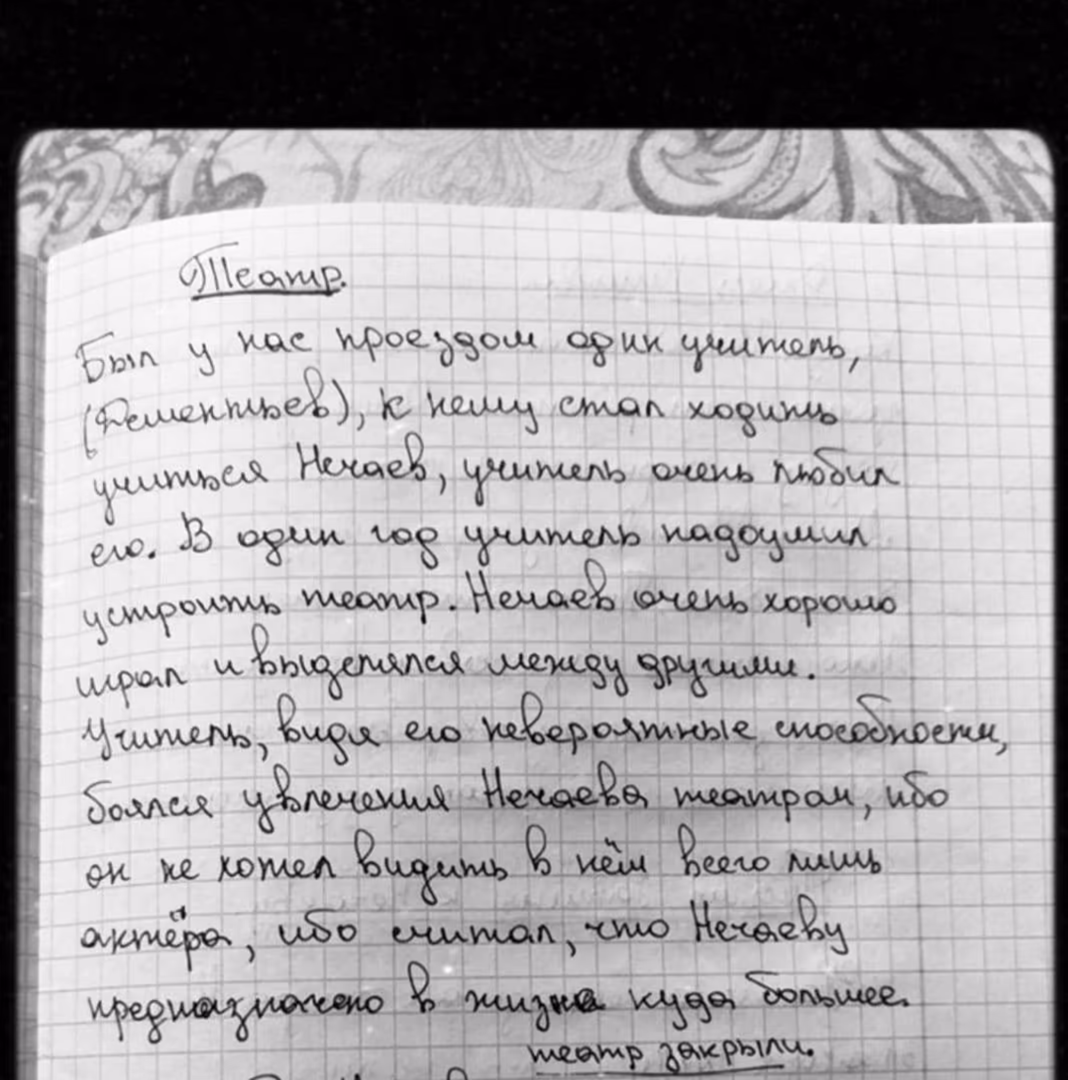 Театр.
Был у нас проездом один учитель,
(Дементьев), к нему стал ходить
учиться Нечаев, учитель очень любил
его. В один год учитель надоумил
устроить театр. Нечаев очень хорошо
играл и выделялся между другими.
Учитель, видя его невероятные способности,
боялся увлечения Нечаева театром, ибо
он не хотел видить в нём всего лишь
актёра, ибо считал, что Нечаеву
предназначено в жизне куда большее.
театр закрыли.